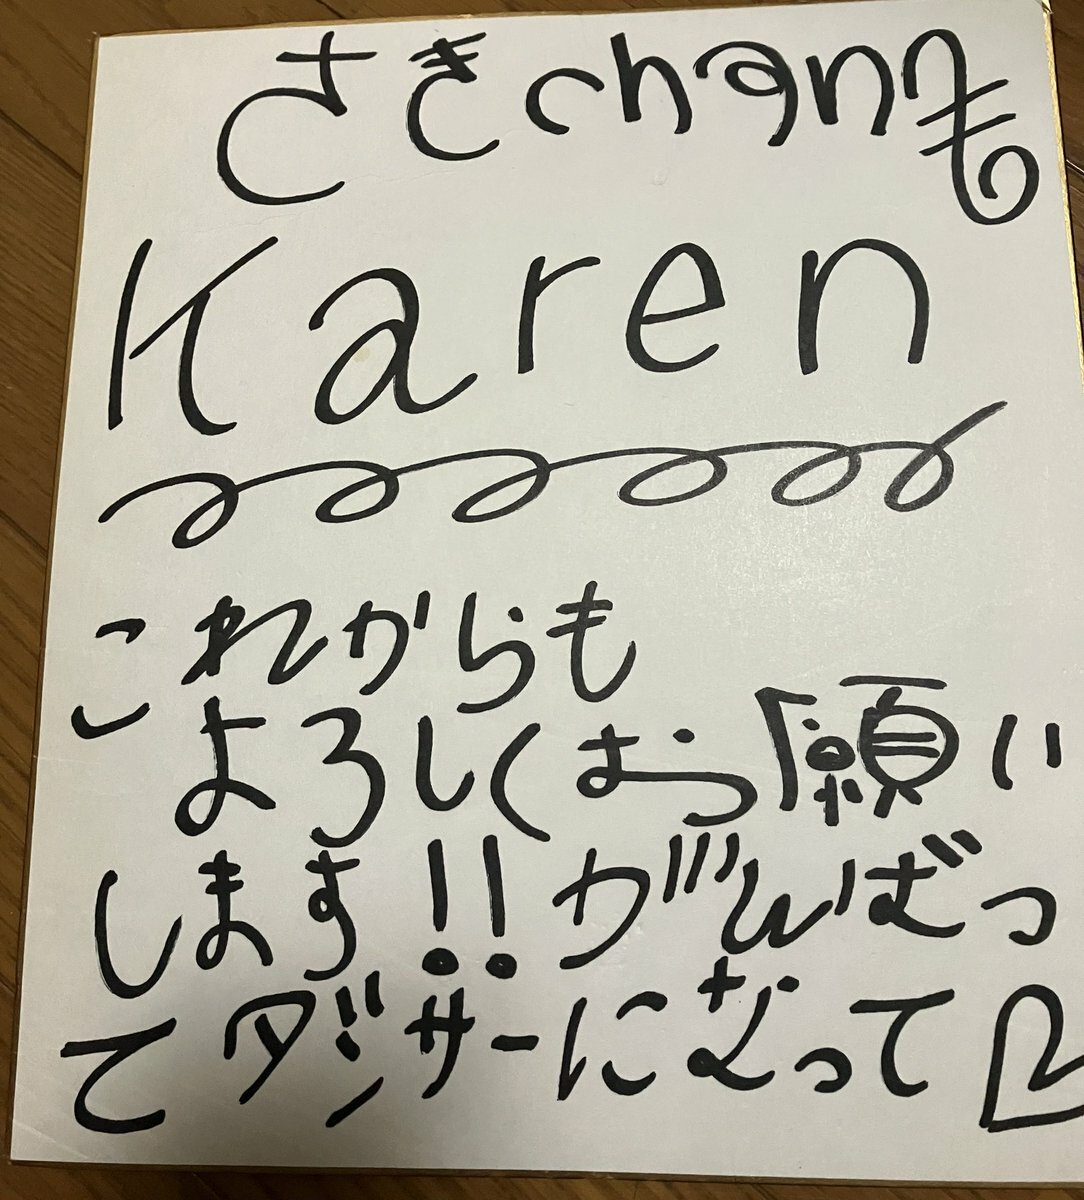 さきchanへ
Karen
これからも
よろしくお願い
します!!がんばっ
てダンサーになって♡